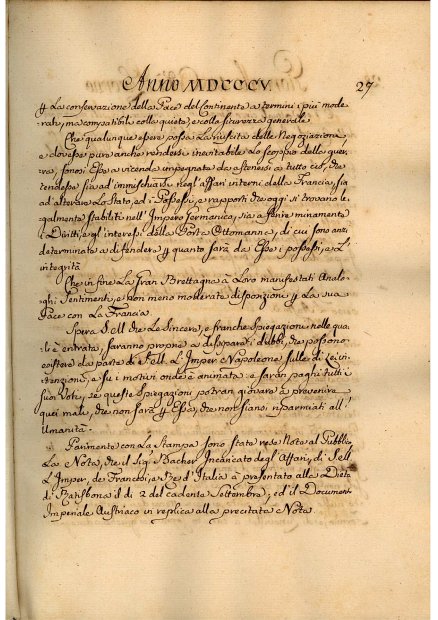 Anno MDCCCV. 27
p La conservazione della Pace del Continente a termini i più mode
rati, ma compatibili colla quiete, e colla sicurezza generale.
Che qualunque esser possa La riuscita delle Negoziazioni
e dovesse pure anche rendersi inevitabile Lo scoppio della guer
ra, sonosi Esse a vicenda impegnate da astenersi a tutto ciò, che
tendesse sia ad immischiarsi negl'affari interni della Francia, sia
ad alterare Lo Stato, ed i Possessi, e rapporti che oggi si trovano le
galmente stabiliti nell'Impero Germanico, sia a ferire minamente
i Diritti, e gl'interessi della Porta Ottomanna, di cui sono anzi
determinate a difendere p quanto sarà da Esse i possessi, e L'
integrità
Che in fine La Gran Brettagna à Loro manifestati Analo
ghi Sentimenti, e non meno moderate disposizioni p La sua
Pace con La Francia.
Spera S. M. che Le Sincere, e franche Spiegazioni nelle qua
li è entrata, saranno proprie a dissipare i dubbi, che possono
esistere da parte di S. M. L'Imper. Napoleone sulle di Lei in
tenzioni, e su i motivi onde è animata; e saran paghi tutti i
suoi Voti, se queste Spiegazioni potran giovare a prevenire
quei mali, che non sarà p Essa, che non siano risparmiati all'
Umanità.
Parimente con La Stampa sono state rese Note al Pubbli
La Nota, che il Sig. Bacher Incaricato degl'Affari di S. M.
L'Imper. de Francesi, e Re d'Italia à presentato alla Dieta
di Ratisbona il dì 2 del cadente Settembre, ed il Document
Imperiale Austriaco in replica alla precitata Nota.